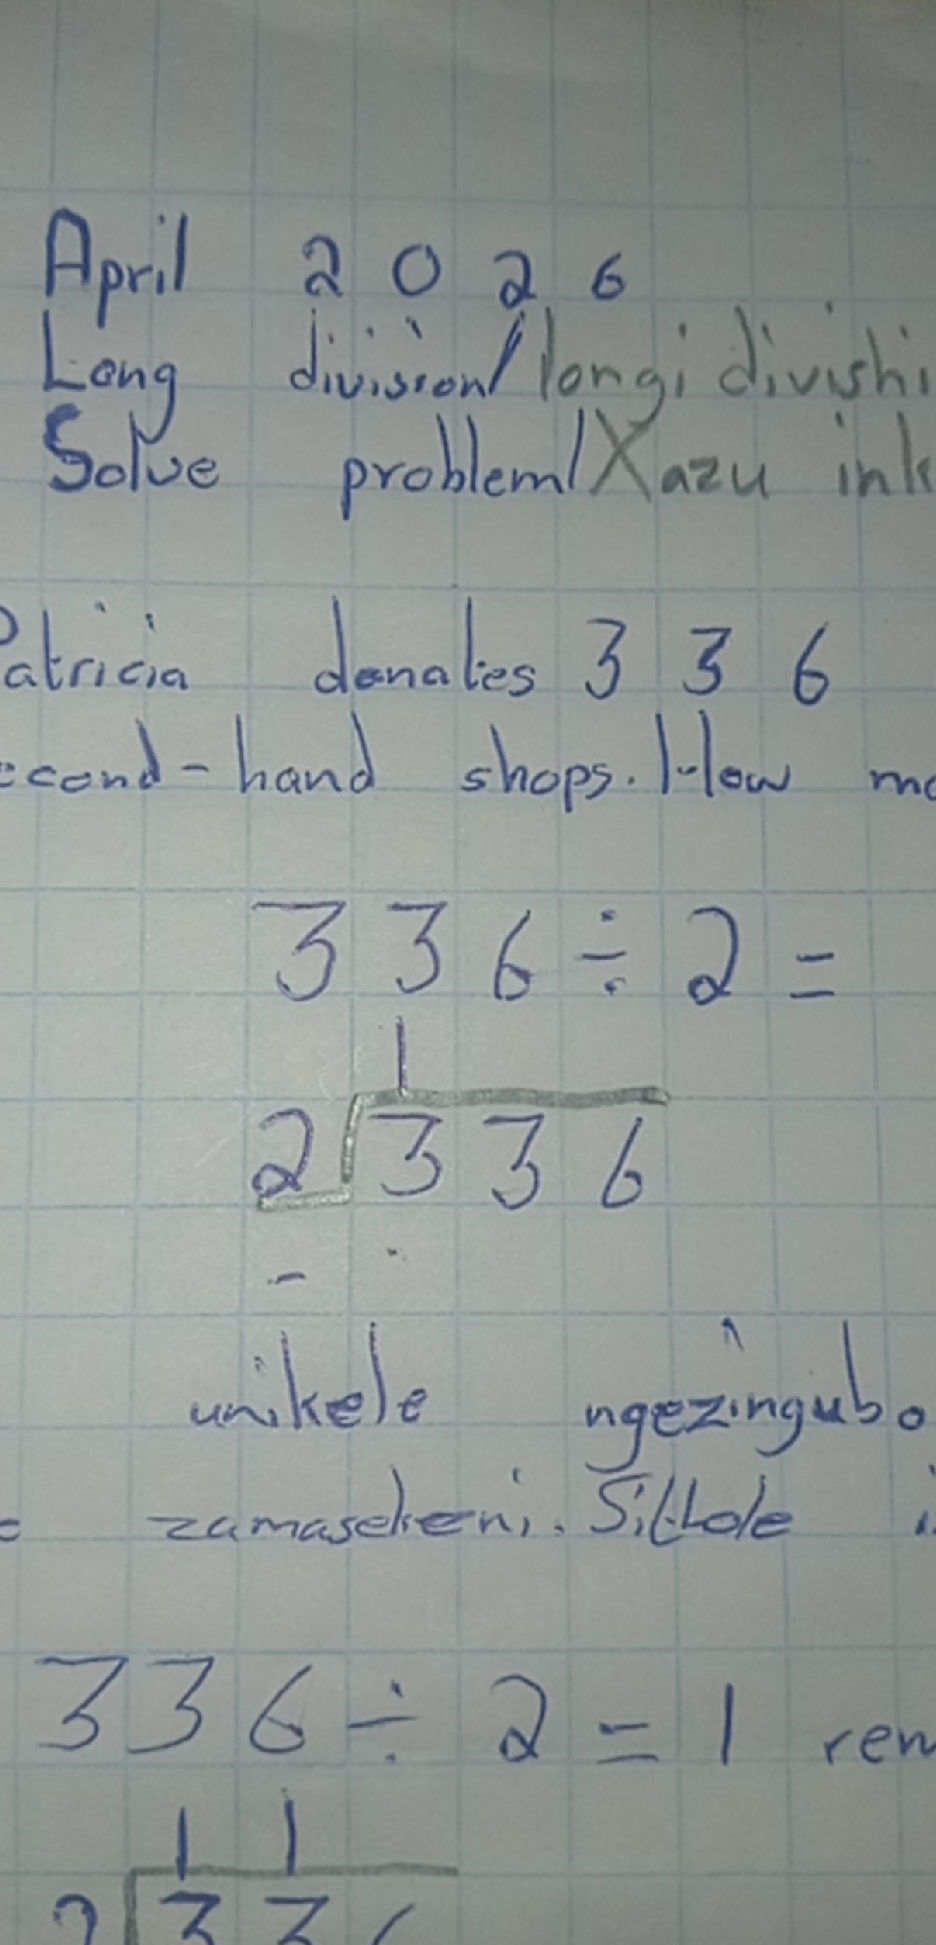 April 2026
Long division/longi divishi
Solve problem/Xazu ink
Patricia donates 336
second-hand shops. How ma
336÷2=
1
2 336
-
unikele ngezingubo
zamasekeni. Sithole i
336÷2=1 rem
11
2 336